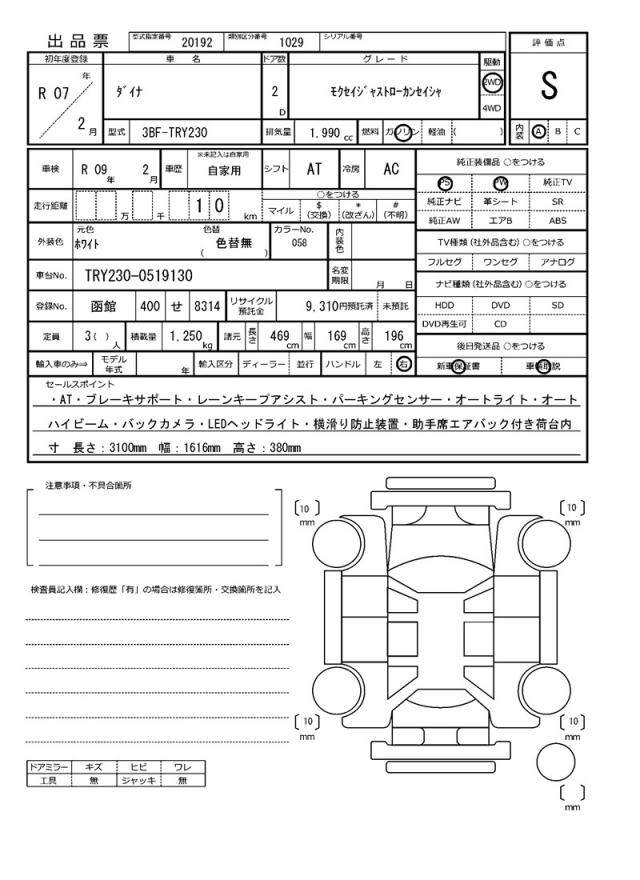 出品票 型式指定番号 20192 類別区分番号 1029 シリアル番号
評価点
S
内装 A B C
初年度登録 車名 ドア数 グレード 駆動
R 07 年 2 月
ﾀﾞｲﾅ
2 D
ﾓｸｾｲｼﾞｬｽﾄﾛｰｶﾝｾｲｼｬ
2WD
4WD
型式 3BF-TRY230 排気量 1.990 cc 燃料 ガソリン 軽油 ( )
車検 R 09 年 2 月 車歴 ※未記入は自家用 自家用 シフト AT 冷房 AC
走行距離 万 千 1 0 km
○をつける
マイル $ (交換) * (改ざん) # (不明)
外装色 元色 ﾎﾜｲﾄ 色替 色替無 ( ) カラーNo. 058 内装色
車台No. TRY230-0519130 名変期限 月 日
登録No. 函館 400 せ 8314 リサイクル預託金 9,310円預託済 未預託
定員 3( ) 人 積載量 1,250 kg 諸元 長さ 469 cm 幅 169 cm 高さ 196 cm
輸入車のみ⇒ モデル年式 年 輸入区分 ディーラー 並行 ハンドル 左 右
純正装備品 ○をつける
PS PW 純正TV
純正ナビ 革シート SR
純正AW エアB ABS
TV種類 (社外品含む) ○をつける
フルセグ ワンセグ アナログ
ナビ種類 (社外品含む) ○をつける
HDD DVD SD
DVD再生可 CD
後日発送品 ○をつける
新車保証書 車輌取説
セールスポイント
・AT・ブレーキサポート・レーンキープアシスト・パーキングセンサー・オートライト・オート
ハイビーム・バックカメラ・LEDヘッドライト・横滑り防止装置・助手席エアバック付き荷台内
寸 長さ：3100mm 幅：1616mm 高さ：380mm
注意事項・不具合箇所
検査員記入欄：修復歴「有」の場合は修復箇所・交換箇所を記入
ドアミラー キズ ヒビ ワレ
工具 無 ジャッキ 無
〔 10 〕 mm
〔 10 〕 mm
〔 10 〕 mm
〔 10 〕 mm
〔 〕 mm